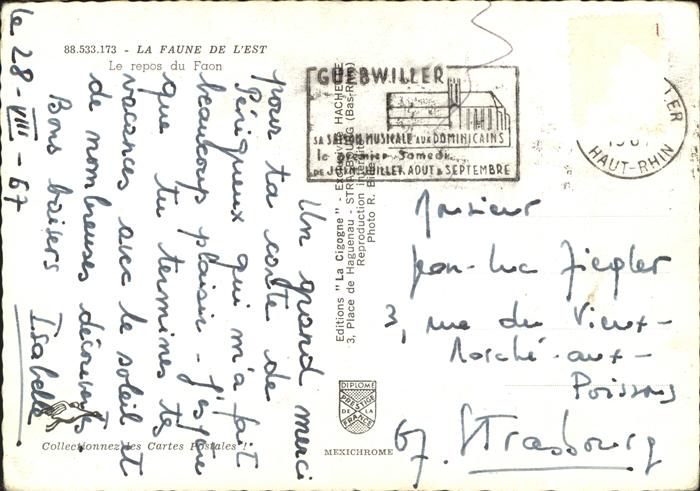 le 28-VIII-67
88.533.173 - LA FAUNE DE L'EST
Le repos du Faon
Un grand merci
pour ta carte de
Périgueux qui m'a fait
beaucoup plaisir - J'espère
que tu termines tes
vacances avec le soleil et
de nombreuses découvertes.
Bons baisers Isabelle
Collectionnez les Cartes Postales !
Editions "La Cigogne" - HACHETTE
3, Place de Haguenau - STRASBOURG (Bas-Rhin)
Reproduction interdite
Photo R.
DIPLOME
PRESTIGE
DE LA
FRANCE
MEXICHROME
GUEBWILLER
SA SAISON MUSICALE AUX DOMINICAINS
le premier Samedi
DE JUIN JUILLET AOUT & SEPTEMBRE
HAUT-RHIN
1
Monsieur
Jean-Luc Ziegler
3, rue du Vieux-
Marché-aux-
Poissons
67. Strasbourg